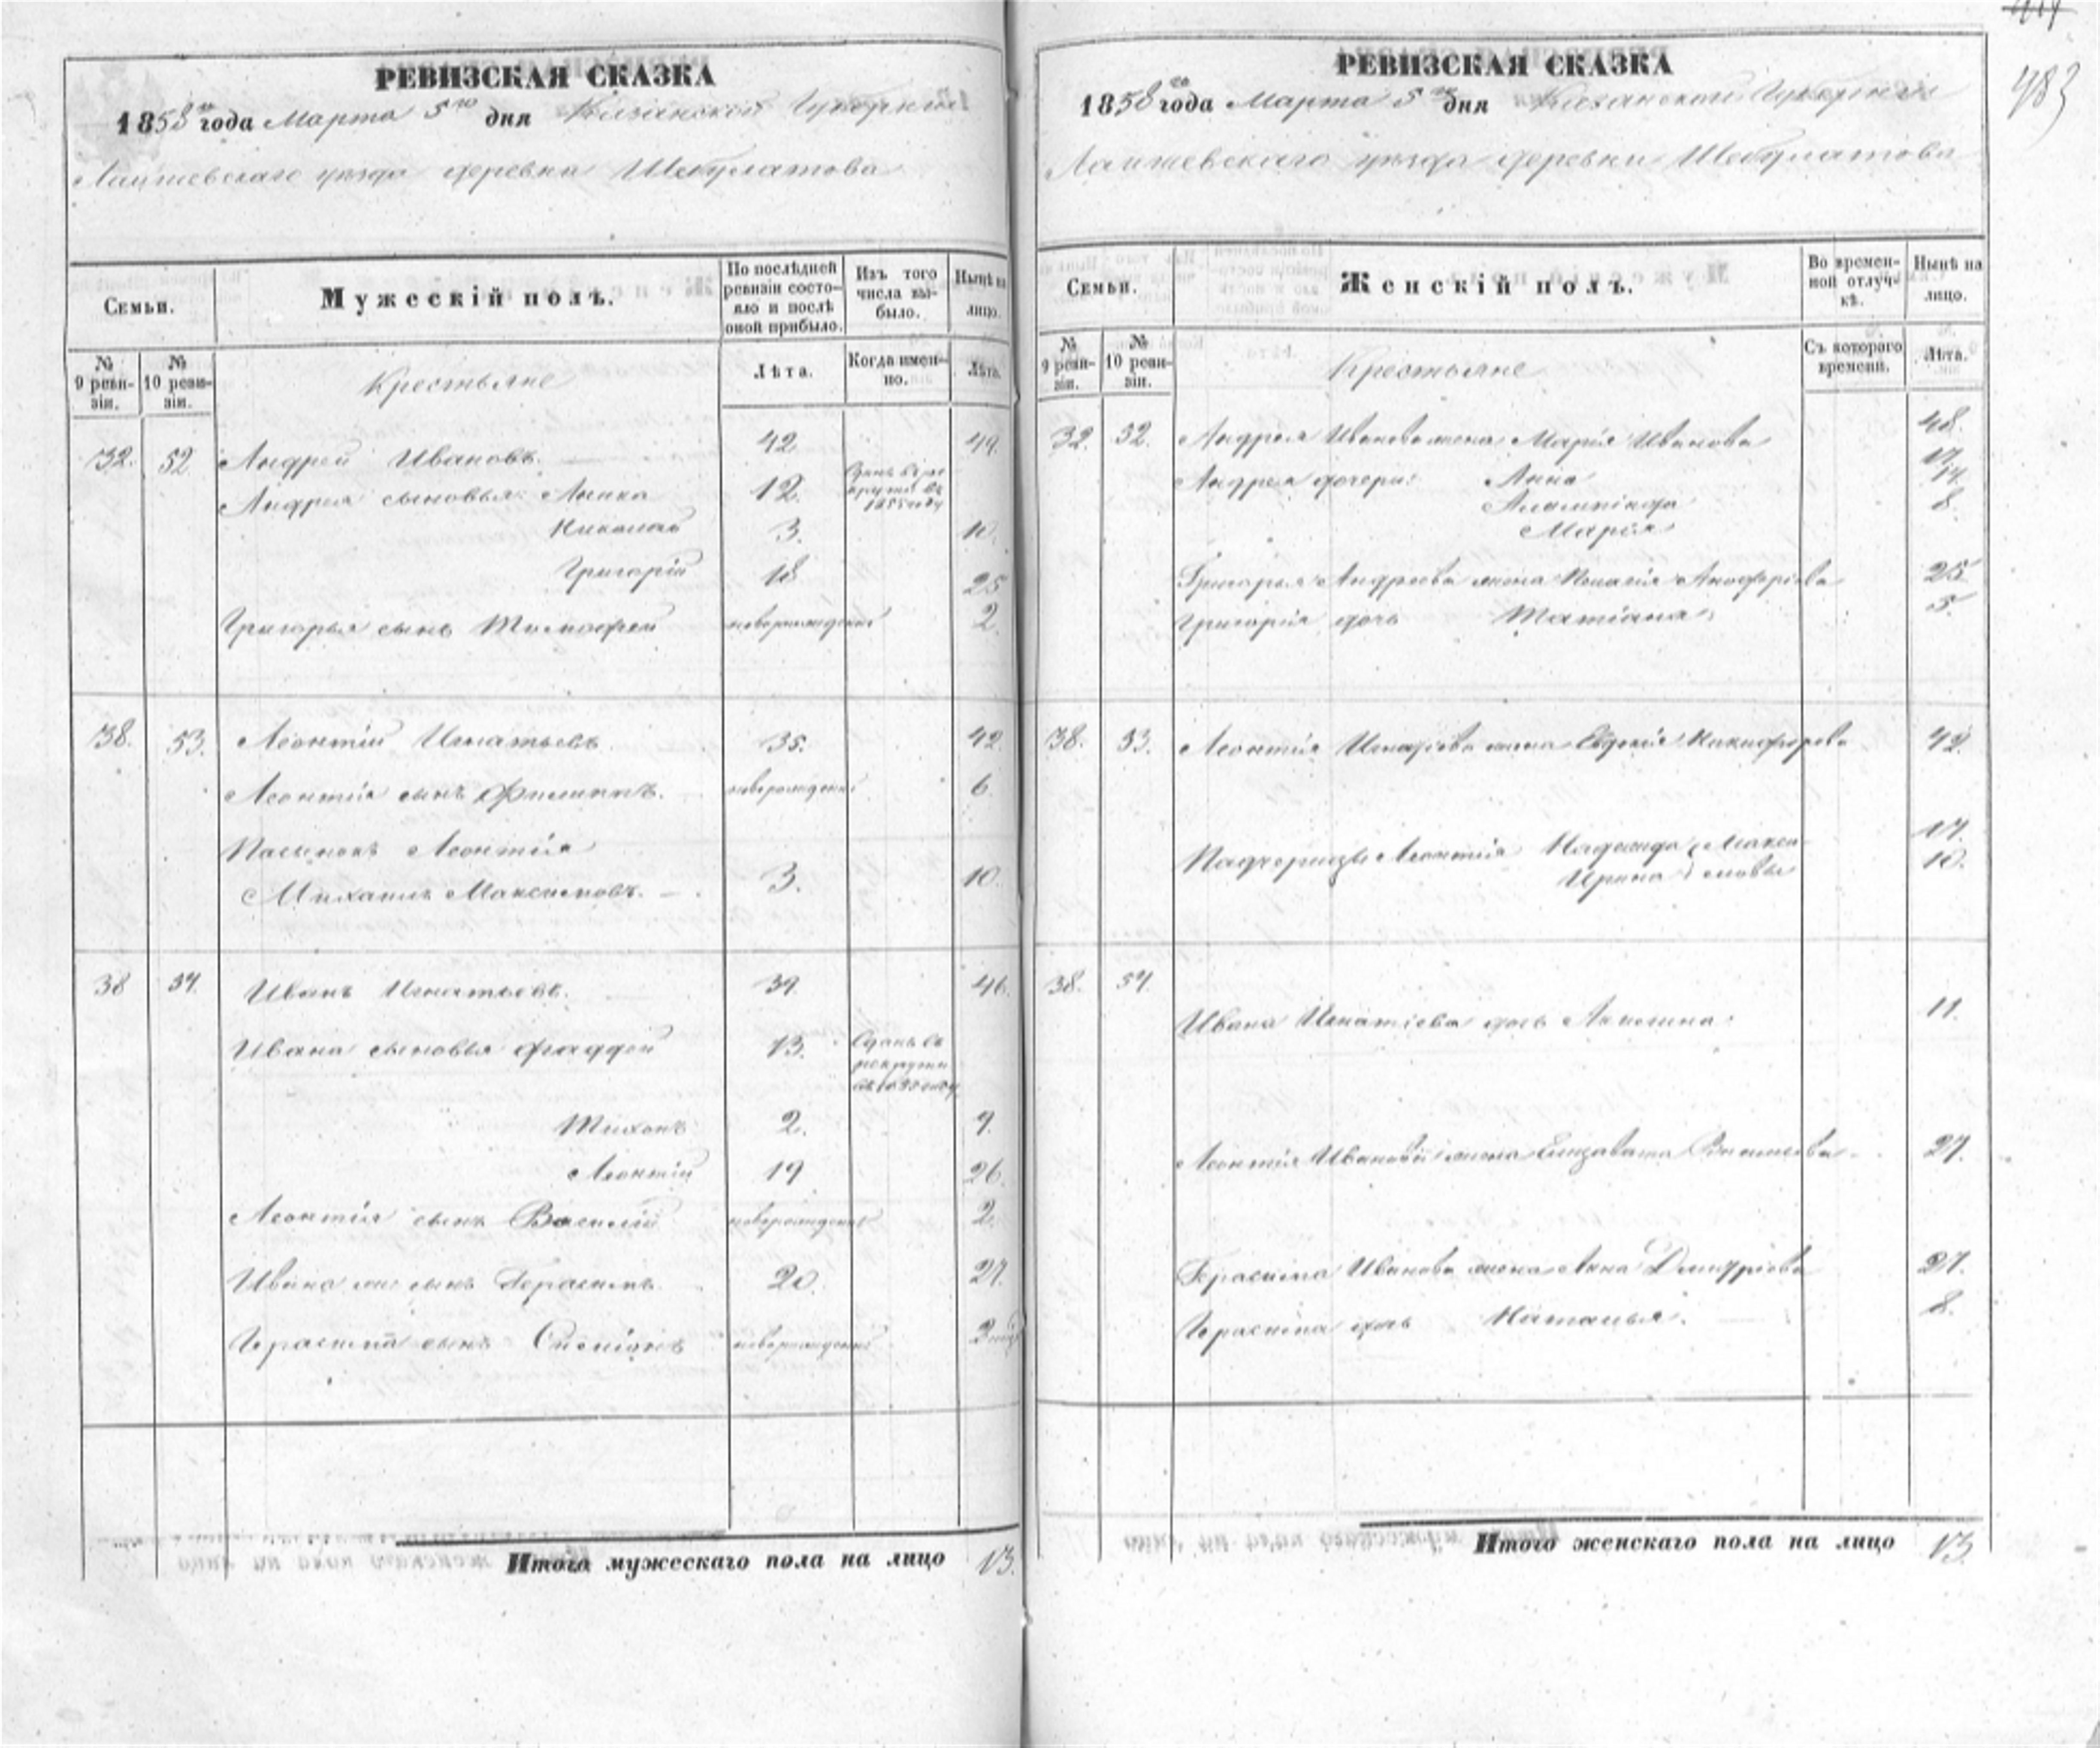 РЕВИЗСКАЯ СКАЗКА
1858 го года Марта 5 го дня Казанской Губернии
Лаишевскаго уезда деревни Шетулатова
Семьи.
Мужескій полъ.
По послѣдней ревизіи состояло и послѣ оной прибыло.
Изъ того числа выбыло.
Нынѣ на лицо.
№ 9 ревизіи.
№ 10 ревизіи.
Крестьяне
Лѣта.
Когда именно.
Лѣта.
32. 52 Андрей Ивановъ. 42 49.
Андрея сыновья: 12. Сданъ въ рекруты въ 1855 году
Николай 3. 10.
Григорій 18 25
Григорья сынъ Тимофей новорожденъ 2.
38. 53. Леонтій Игнатьевъ 35. 42
Леонтія сынъ Филиппъ. новорожденъ 6.
Пасынокъ Леонтія
Михаилъ Максимовъ. 3. 10.
38 54. Иванъ Игнатьевъ. 39. 46.
Ивана сыновья Фаддей 13. Сданъ въ рекруты
Тихонъ 2. 9.
Леонтій 19 26.
Леонтія сынъ Василій новорожденъ 2.
Ивана же сынъ Герасимъ. 20. 27.
Герасима сынъ новорожденъ 3
Итого мужескаго пола на лицо 13.
483
РЕВИЗСКАЯ СКАЗКА
1858 го года Марта 5 го дня Казанской Губерніи
Лаишевскаго уезда деревни Шетулатова
Семьи.
Женскій полъ.
Во временной отлучкѣ.
Нынѣ на лицо.
№ 9 ревизіи.
№ 10 ревизіи.
Крестьяне
Съ котораго времени.
Лѣта.
32. 52. Андрея Иванова жена Марія Иванова 48.
Андрея дочери: Анна 17.
14.
Марія 8.
Григорья Андреева жена Пелагія 25
Григорія дочь Татіана 5.
38. 53. Леонтія жена Евдокія Никифорова 42.
Падчерицы Леонтія Надежда Макси- 14.
Ирина мовы 10.
38. 54.
Ивана Игнатіева дочь Акулина. 11.
Леонтія Иванова жена Елизавета 27.
Герасима Иванова жена Анна Дмитріева 27.
Герасима дочь Наталья. 8.
Итого женскаго пола на лицо 13.